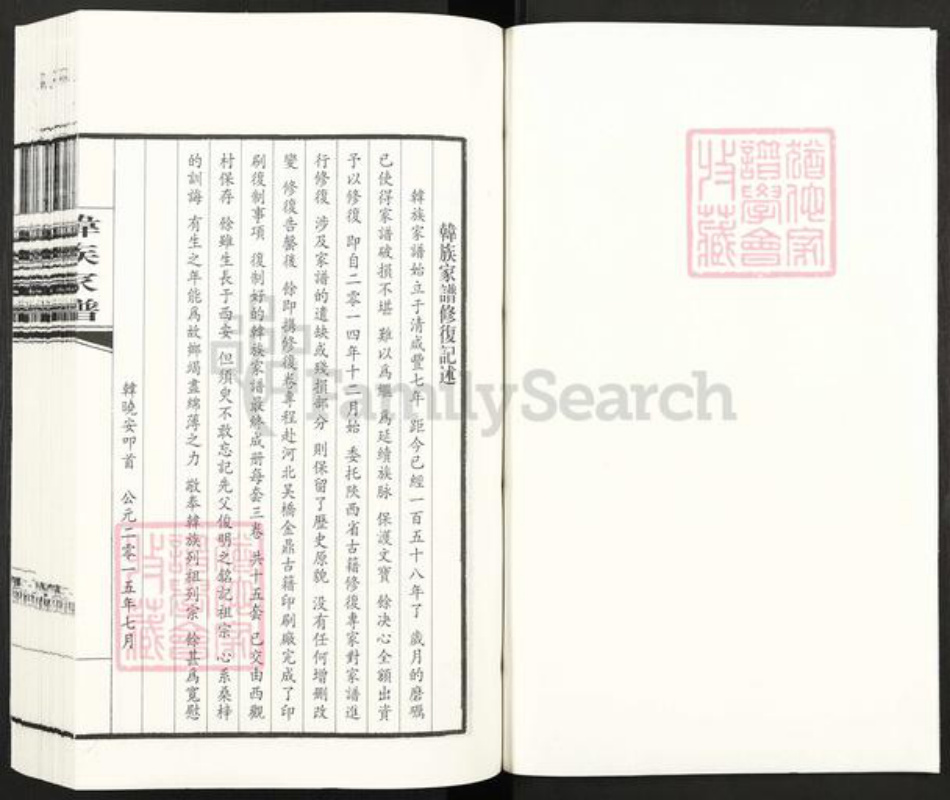 韓族家譜修復記述
韓族家譜始立于清咸豐七年 距今已經一百五十八年了 歲月的磨礪
已使得家譜破損不堪 難以爲繼 爲延續族脉 保護文寶 餘決心全額出資
予以修復 即自二零一四年十二月始 委托陝西省古籍修復專家對家譜進
行修復 涉及家譜的遺缺或殘損部分 則保留了歷史原貌 没有任何增删改
變 修復告罄後 餘即携修復卷專程赴河北吴橋金鼎古籍印刷廠完成了印
刷復制事項 復制好的韓族家譜最終成册每套三卷 共十五套 已交由西觀
村保存 餘雖生長于西安 但須臾不敢忘記先父俊明之銘記祖宗 心系桑梓
的訓誨 有生之年能爲故鄉竭盡綿薄之力 敬奉韓族列祖列宗 餘甚爲寬慰
韓曉安叩首 公元二零一五年七月
韓族家譜
猶他家
譜學會
收藏
猶他家
譜學會
收藏
FamilySearch